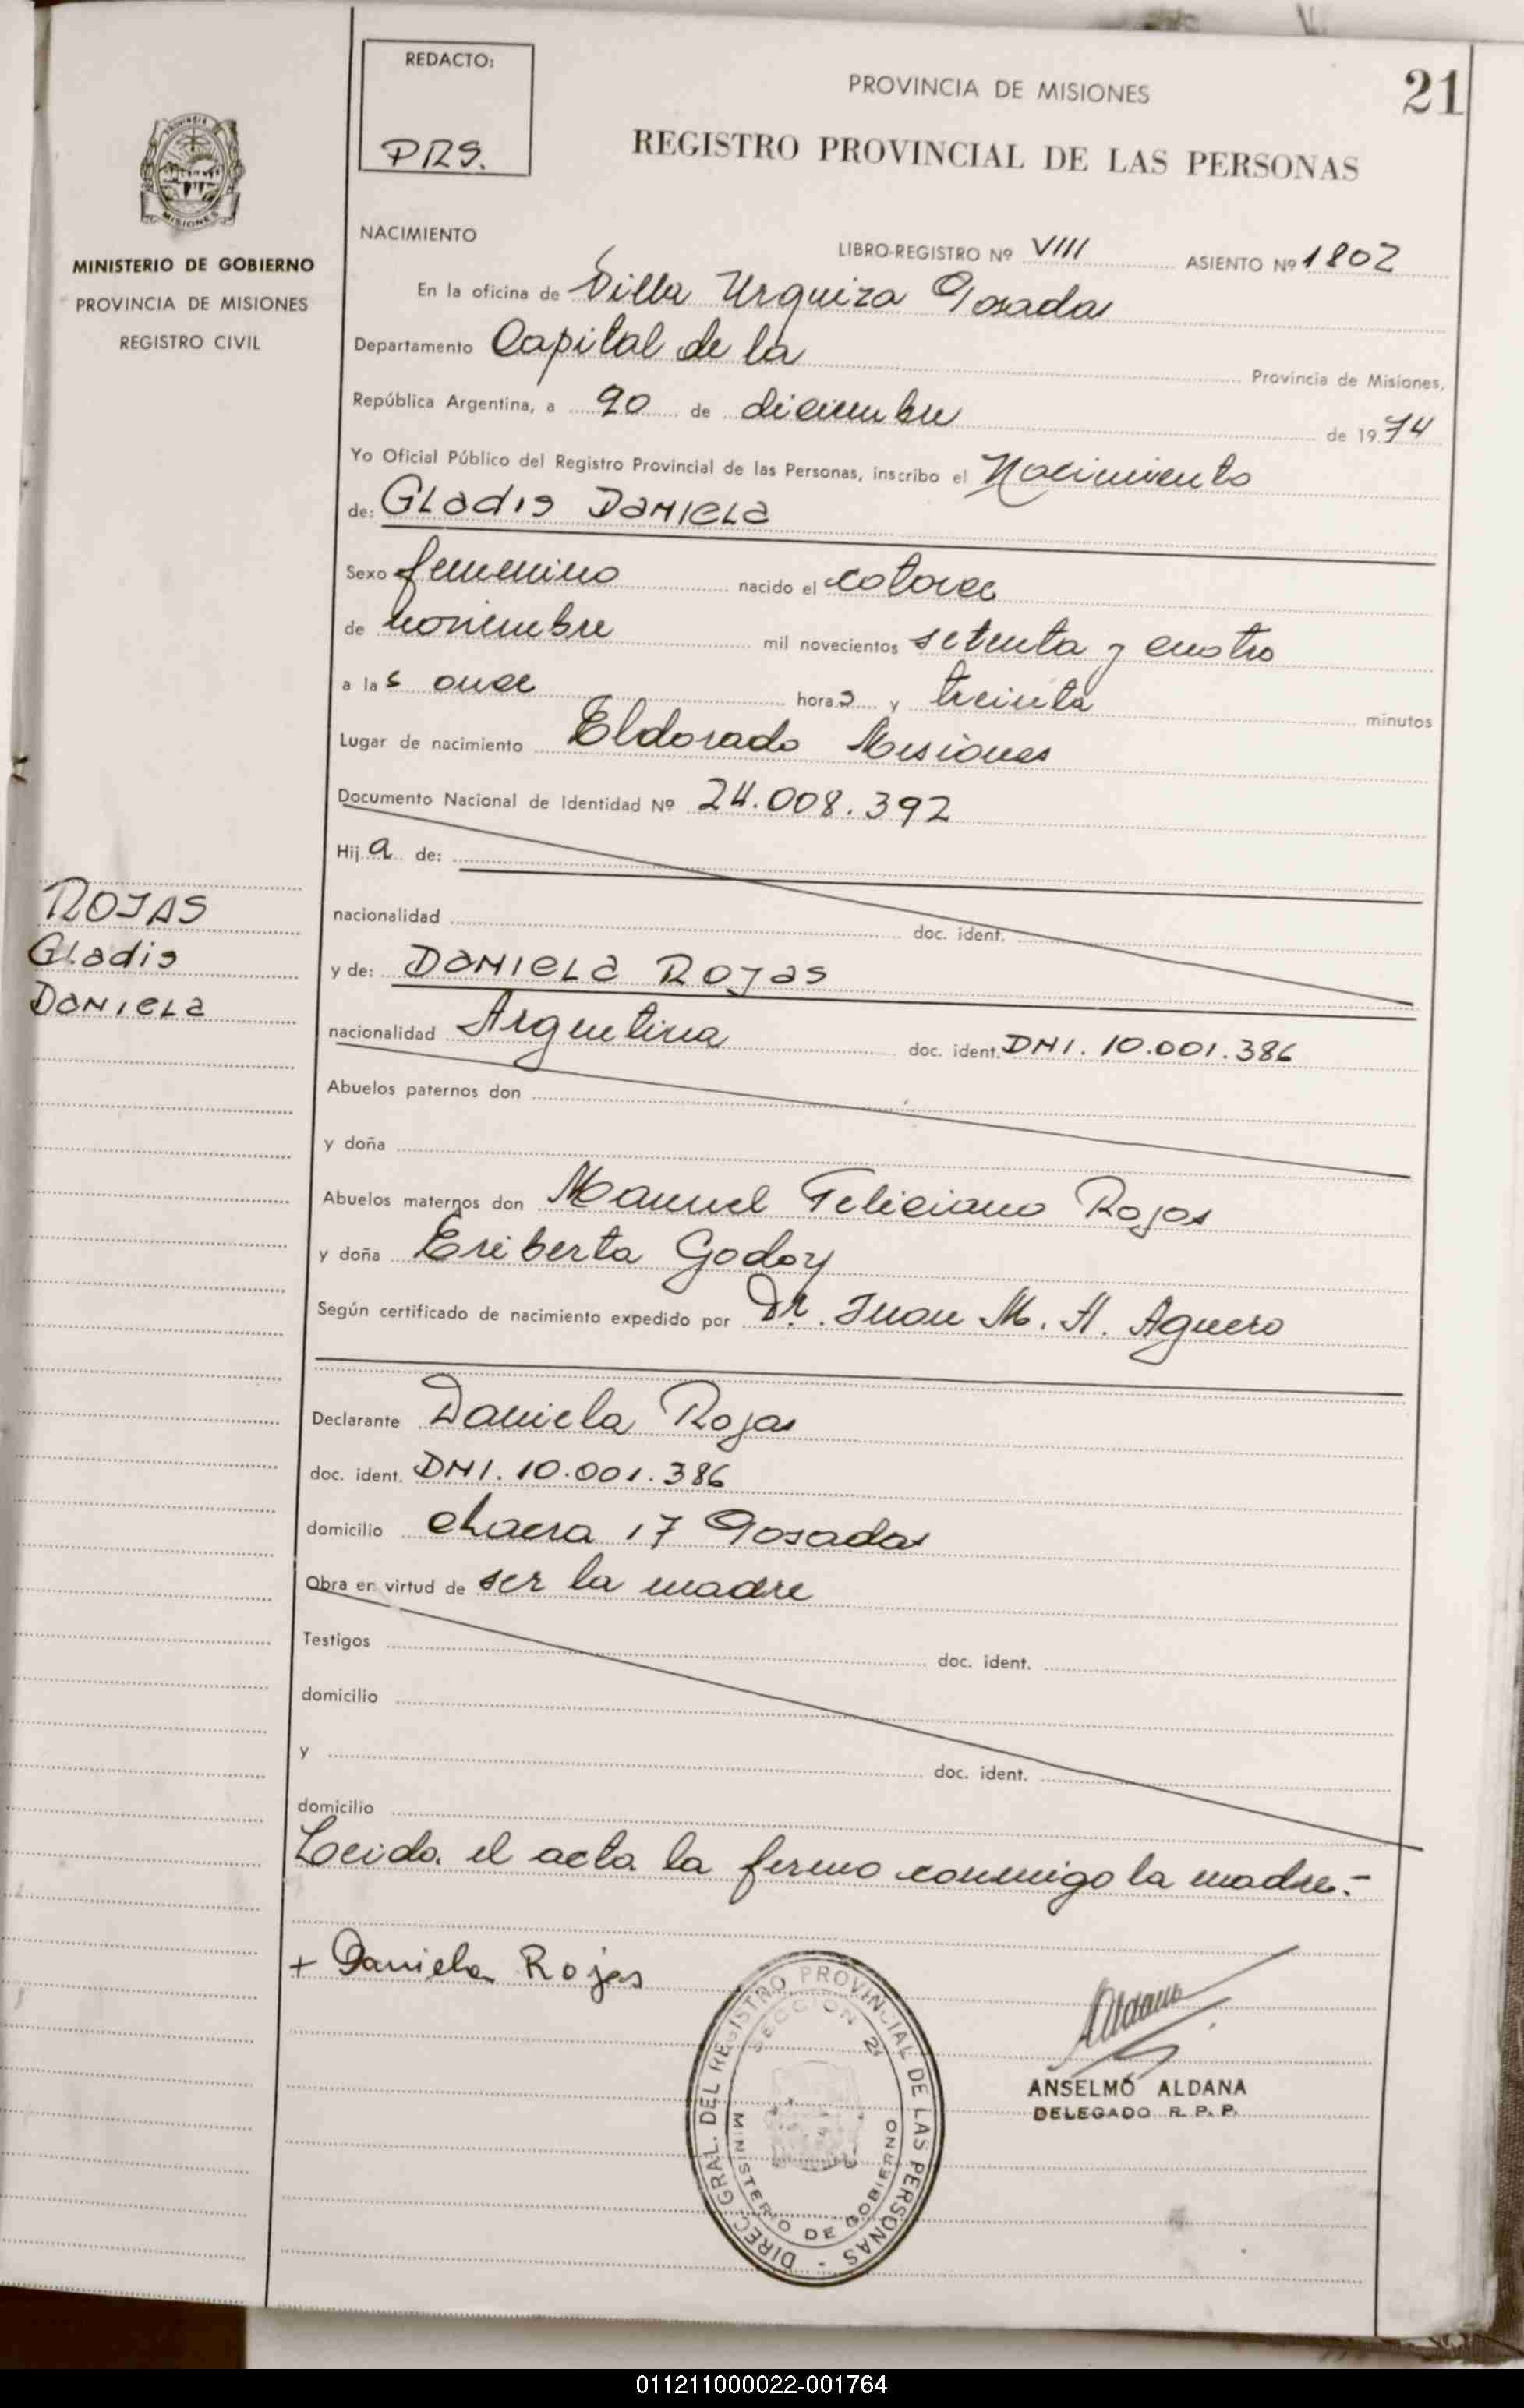 REDACTO:
PRS.
PROVINCIA DE MISIONES
21
REGISTRO PROVINCIAL DE LAS PERSONAS
PROVINCIA DE
MISIONES
MINISTERIO DE GOBIERNO
PROVINCIA DE MISIONES
REGISTRO CIVIL
NACIMIENTO
LIBRO-REGISTRO Nº VIII ASIENTO Nº 1802
En la oficina de Villa Urquiza Posadas
Departamento Capital de la Provincia de Misiones,
República Argentina, a 20 de diciembre de 1974
Yo Oficial Público del Registro Provincial de las Personas, inscribo el Nacimiento
de: Gladis Daniela
Sexo femenino nacido el catorce
de noviembre mil novecientos setenta y cuatro
a las once horas y treinta minutos
Lugar de nacimiento Eldorado Misiones
Documento Nacional de Identidad Nº 24.008.392
Hija de:
nacionalidad doc. ident.
ROJAS
Gladis
Daniela
y de: Daniela Rojas
nacionalidad Argentina doc. ident. DNI. 10.001.386
Abuelos paternos don
y doña
Abuelos maternos don Manuel Feliciano Rojas
y doña Eriberta Godoy
Según certificado de nacimiento expedido por Dr. Juan M. H. Aguero
Declarante Daniela Rojas
doc. ident. DNI. 10.001.386
domicilio chacra 17 Posadas
Obra en virtud de ser la madre
Testigos doc. ident.
domicilio
y doc. ident.
domicilio
Leida el acta la firmo conmigo la madre.-
+ Daniela Rojas
Aldana
ANSELMO ALDANA
DELEGADO R. P. P.
DIREC. GRAL. DEL REGISTRO PROVINCIAL DE LAS PERSONAS -
SECCION 2ª
MINISTERIO DE GOBIERNO
011211000022-001764